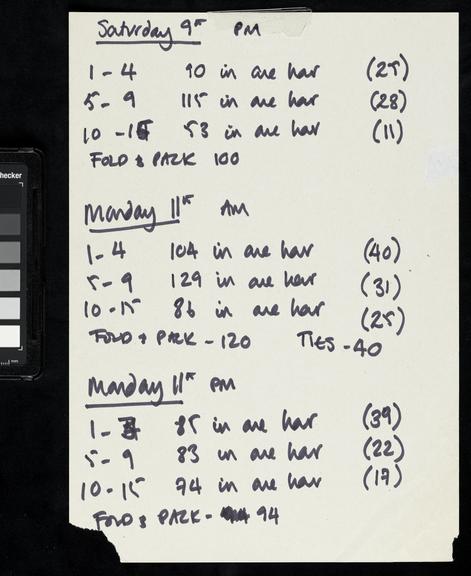 Saturday 9th PM
1-4 90 in one hour (25)
5-9 115 in one hour (28)
10-15 53 in one hour (11)
FOLD & PACK 100
Monday 11th AM
1-4 104 in one hour (40)
5-9 129 in one hour (31)
10-15 86 in one hour (25)
FOLD & PACK - 120 TIES - 40
Monday 11th PM
1- 85 in one hour (39)
5-9 83 in one hour (22)
10-15 74 in one hour (17)
FOLD & PACK - 94
hecker